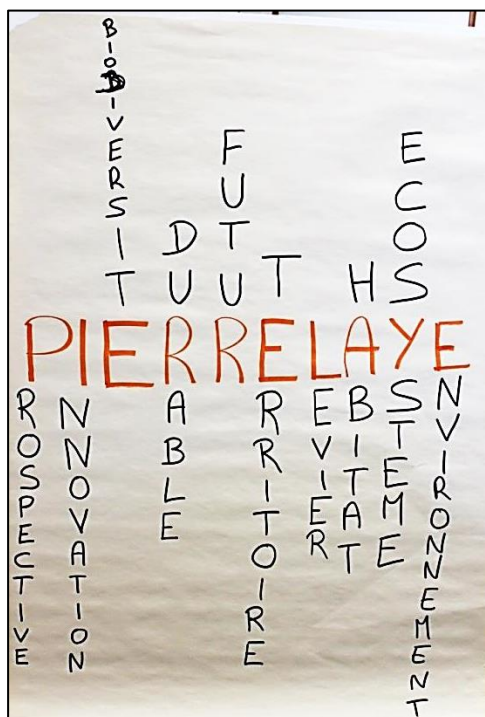 PIERRELAYE
PROSPECTIVE
INNOVATION
BIODIVERSITE
DURABLE
FUTUR
TERRITOIRE
LEVIER
HABITAT
ECOSYSTEME
ENVIRONNEMENT